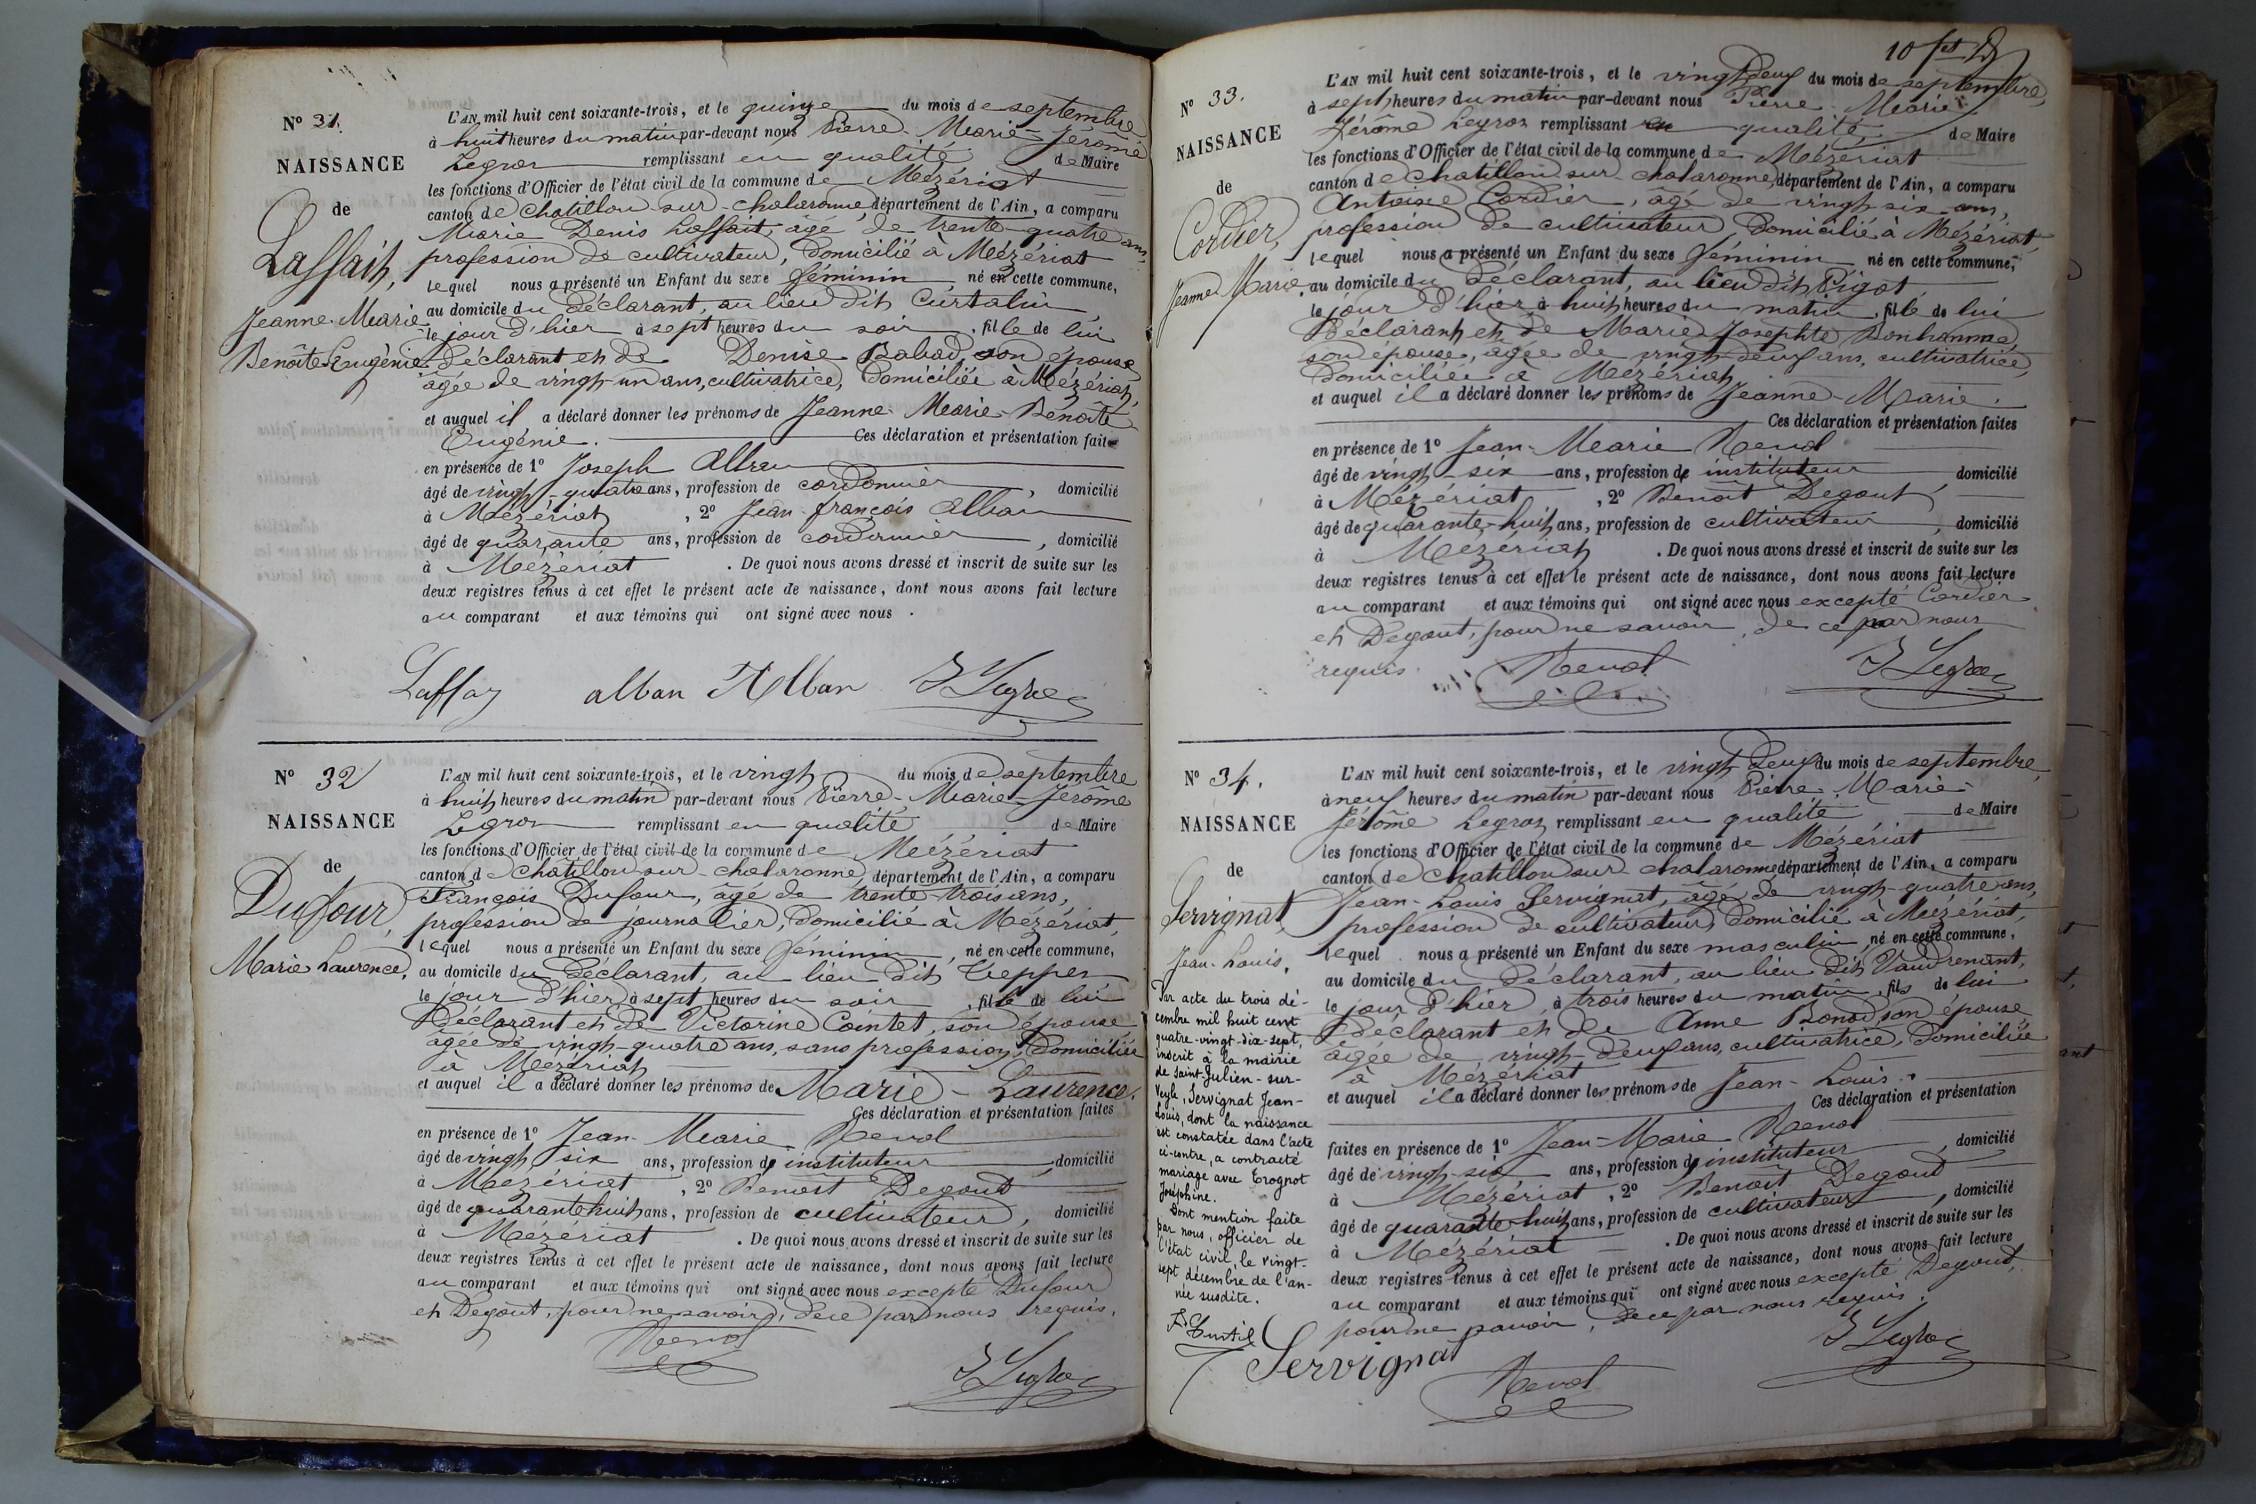 Nº 31.
NAISSANCE
de
Laffait,
Jeanne-Marie
Benoîte-Eugénie
L'AN mil huit cent soixante-trois, et le quinze du mois de septembre
à huit heures du matin par-devant nous Pierre-Marie-Jérôme
Legros remplissant en qualité de Maire
les fonctions d'Officier de l'état civil de la commune de Mézériat
canton de Chatillon-sur-chalaronne, département de l'Ain, a comparu
Marie Denis Laffait, âgé de trente-quatre ans,
profession de cultivateur, domicilié à Mézériat
lequel nous a présenté un Enfant du sexe féminin né en cette commune,
au domicile du déclarant, au lieu dit Curtalin
le jour d'hier à sept heures du soir, fille de lui
déclarant et de Denise Rabad, son épouse
âgée de vingt-un ans, cultivatrice, domiciliée à Mézériat,
et auquel il a déclaré donner les prénoms de Jeanne-Marie-Benoîte
Eugénie. Ces déclaration et présentation faites
en présence de 1º Joseph Alban
âgé de vingt-quatre ans, profession de cordonnier, domicilié
à Mézériat, 2º Jean-françois Alban
âgé de quarante ans, profession de cordonnier, domicilié
à Mézériat. De quoi nous avons dressé et inscrit de suite sur les
deux registres tenus à cet effet le présent acte de naissance, dont nous avons fait lecture
au comparant et aux témoins qui ont signé avec nous.
Laffay alban Alban J Legros
Nº 32
NAISSANCE
de
Dufour,
Marie Laurence,
L'AN mil huit cent soixante-trois, et le vingt du mois de septembre
à huit heures du matin par-devant nous Pierre-Marie-Jérôme
Legros remplissant en qualité de Maire
les fonctions d'Officier de l'état civil de la commune de Mézériat
canton de chatillon-sur-chalaronne, département de l'Ain, a comparu
François Dufour, âgé de trente-trois ans,
profession de journalier, domicilié à Mézériat,
lequel nous a présenté un Enfant du sexe féminin, né en cette commune,
au domicile du déclarant, au lieu dit Teppes
le jour d'hier à sept heures du soir, fille de lui
déclarant et de Victorine Cointet, son épouse
âgée de vingt-quatre ans, sans profession, domiciliée
à Mézériat
et auquel il a déclaré donner les prénoms de Marie-Laurence.
Ces déclaration et présentation faites
en présence de 1º Jean-Marie Revol
âgé de vingt six ans, profession de instituteur, domicilié
à Mézériat, 2º Benoit Degout
âgé de quarante huit ans, profession de cultivateur, domicilié
à Mézériat. De quoi nous avons dressé et inscrit de suite sur les
deux registres tenus à cet effet le présent acte de naissance, dont nous avons fait lecture
au comparant et aux témoins qui ont signé avec nous excepté Dufour
et Degout, pour ne savoir, de ce par nous requis.
Revol
J Legros
10 fet
Nº 33.
NAISSANCE
de
Cordier,
Jeanne Marie.
L'AN mil huit cent soixante-trois, et le vingt deux du mois de septembre,
à sept heures du matin par-devant nous Pierre-Marie
Jérôme Legros remplissant en qualité de Maire
les fonctions d'Officier de l'état civil de la commune de Mézériat
canton de chatillon sur chalaronne, département de l'Ain, a comparu
Antoine Cordier, âgé de vingt-six ans,
profession de cultivateur, domicilié à Mézériat,
lequel nous a présenté un Enfant du sexe féminin né en cette commune,
au domicile du déclarant, au lieu dit Pigot
le jour d'hier à huit heures du matin, fille de lui
déclarant et de Marie Josephte Bonhomme,
son épouse, âgée de vingt-deux ans, cultivatrice,
domiciliée à Mézériat
et auquel il a déclaré donner les prénoms de Jeanne-Marie.
Ces déclaration et présentation faites
en présence de 1º Jean-Marie Revol
âgé de vingt-six ans, profession de instituteur, domicilié
à Mézériat, 2º Benoit Degout,
âgé de quarante-huit ans, profession de cultivateur, domicilié
à Mézériat. De quoi nous avons dressé et inscrit de suite sur les
deux registres tenus à cet effet le présent acte de naissance, dont nous avons fait lecture
au comparant et aux témoins qui ont signé avec nous excepté Cordier
et Degout, pour ne savoir, de ce par nous
requis.
Revol J Legros
Nº 34.
NAISSANCE
de
Servignat,
Jean-Louis,
Par acte du trois dé-
cembre mil huit cent
quatre-vingt-dix-sept,
inscrit à la mairie
de Saint-Julien-sur-
Veyle, Servignat Jean-
Louis, dont la naissance
est constatée dans l'acte
ci-contre, a contracté
mariage avec Trognot
Joséphine.
Dont mention faite
par nous, officier de
l'état civil, le vingt-
sept décembre de l'an-
née susdite.
L'AN mil huit cent soixante-trois, et le vingt deux du mois de septembre,
à neuf heures du matin par-devant nous Pierre Marie-
Jérôme Legros remplissant en qualité de Maire
les fonctions d'Officier de l'état civil de la commune de Mézériat
canton de chatillon sur chalaronne département de l'Ain, a comparu
Jean-Louis Servignat, âgé de vingt-quatre ans,
profession de cultivateur, domicilié à Mézériat,
lequel nous a présenté un Enfant du sexe masculin, né en cette commune,
au domicile du déclarant, au lieu dit Vaudrenant,
le jour d'hier, à trois heures du matin, fils de lui
déclarant et de Anne Bonod, son épouse
âgée de vingt-deux ans, cultivatrice, domiciliée
à Mézériat
et auquel il a déclaré donner les prénoms de Jean-Louis.
Ces déclaration et présentation
faites en présence de 1º Jean-Marie Revol
âgé de vingt-six ans, profession de instituteur, domicilié
à Mézériat, 2º Benoit Degout
âgé de quarante-huit ans, profession de cultivateur, domicilié
à Mézériat. De quoi nous avons dressé et inscrit de suite sur les
deux registres tenus à cet effet le présent acte de naissance, dont nous avons fait lecture
au comparant et aux témoins qui ont signé avec nous excepté Degout,
pour ne savoir, de ce par nous requis.
Servignat Revol J Legros